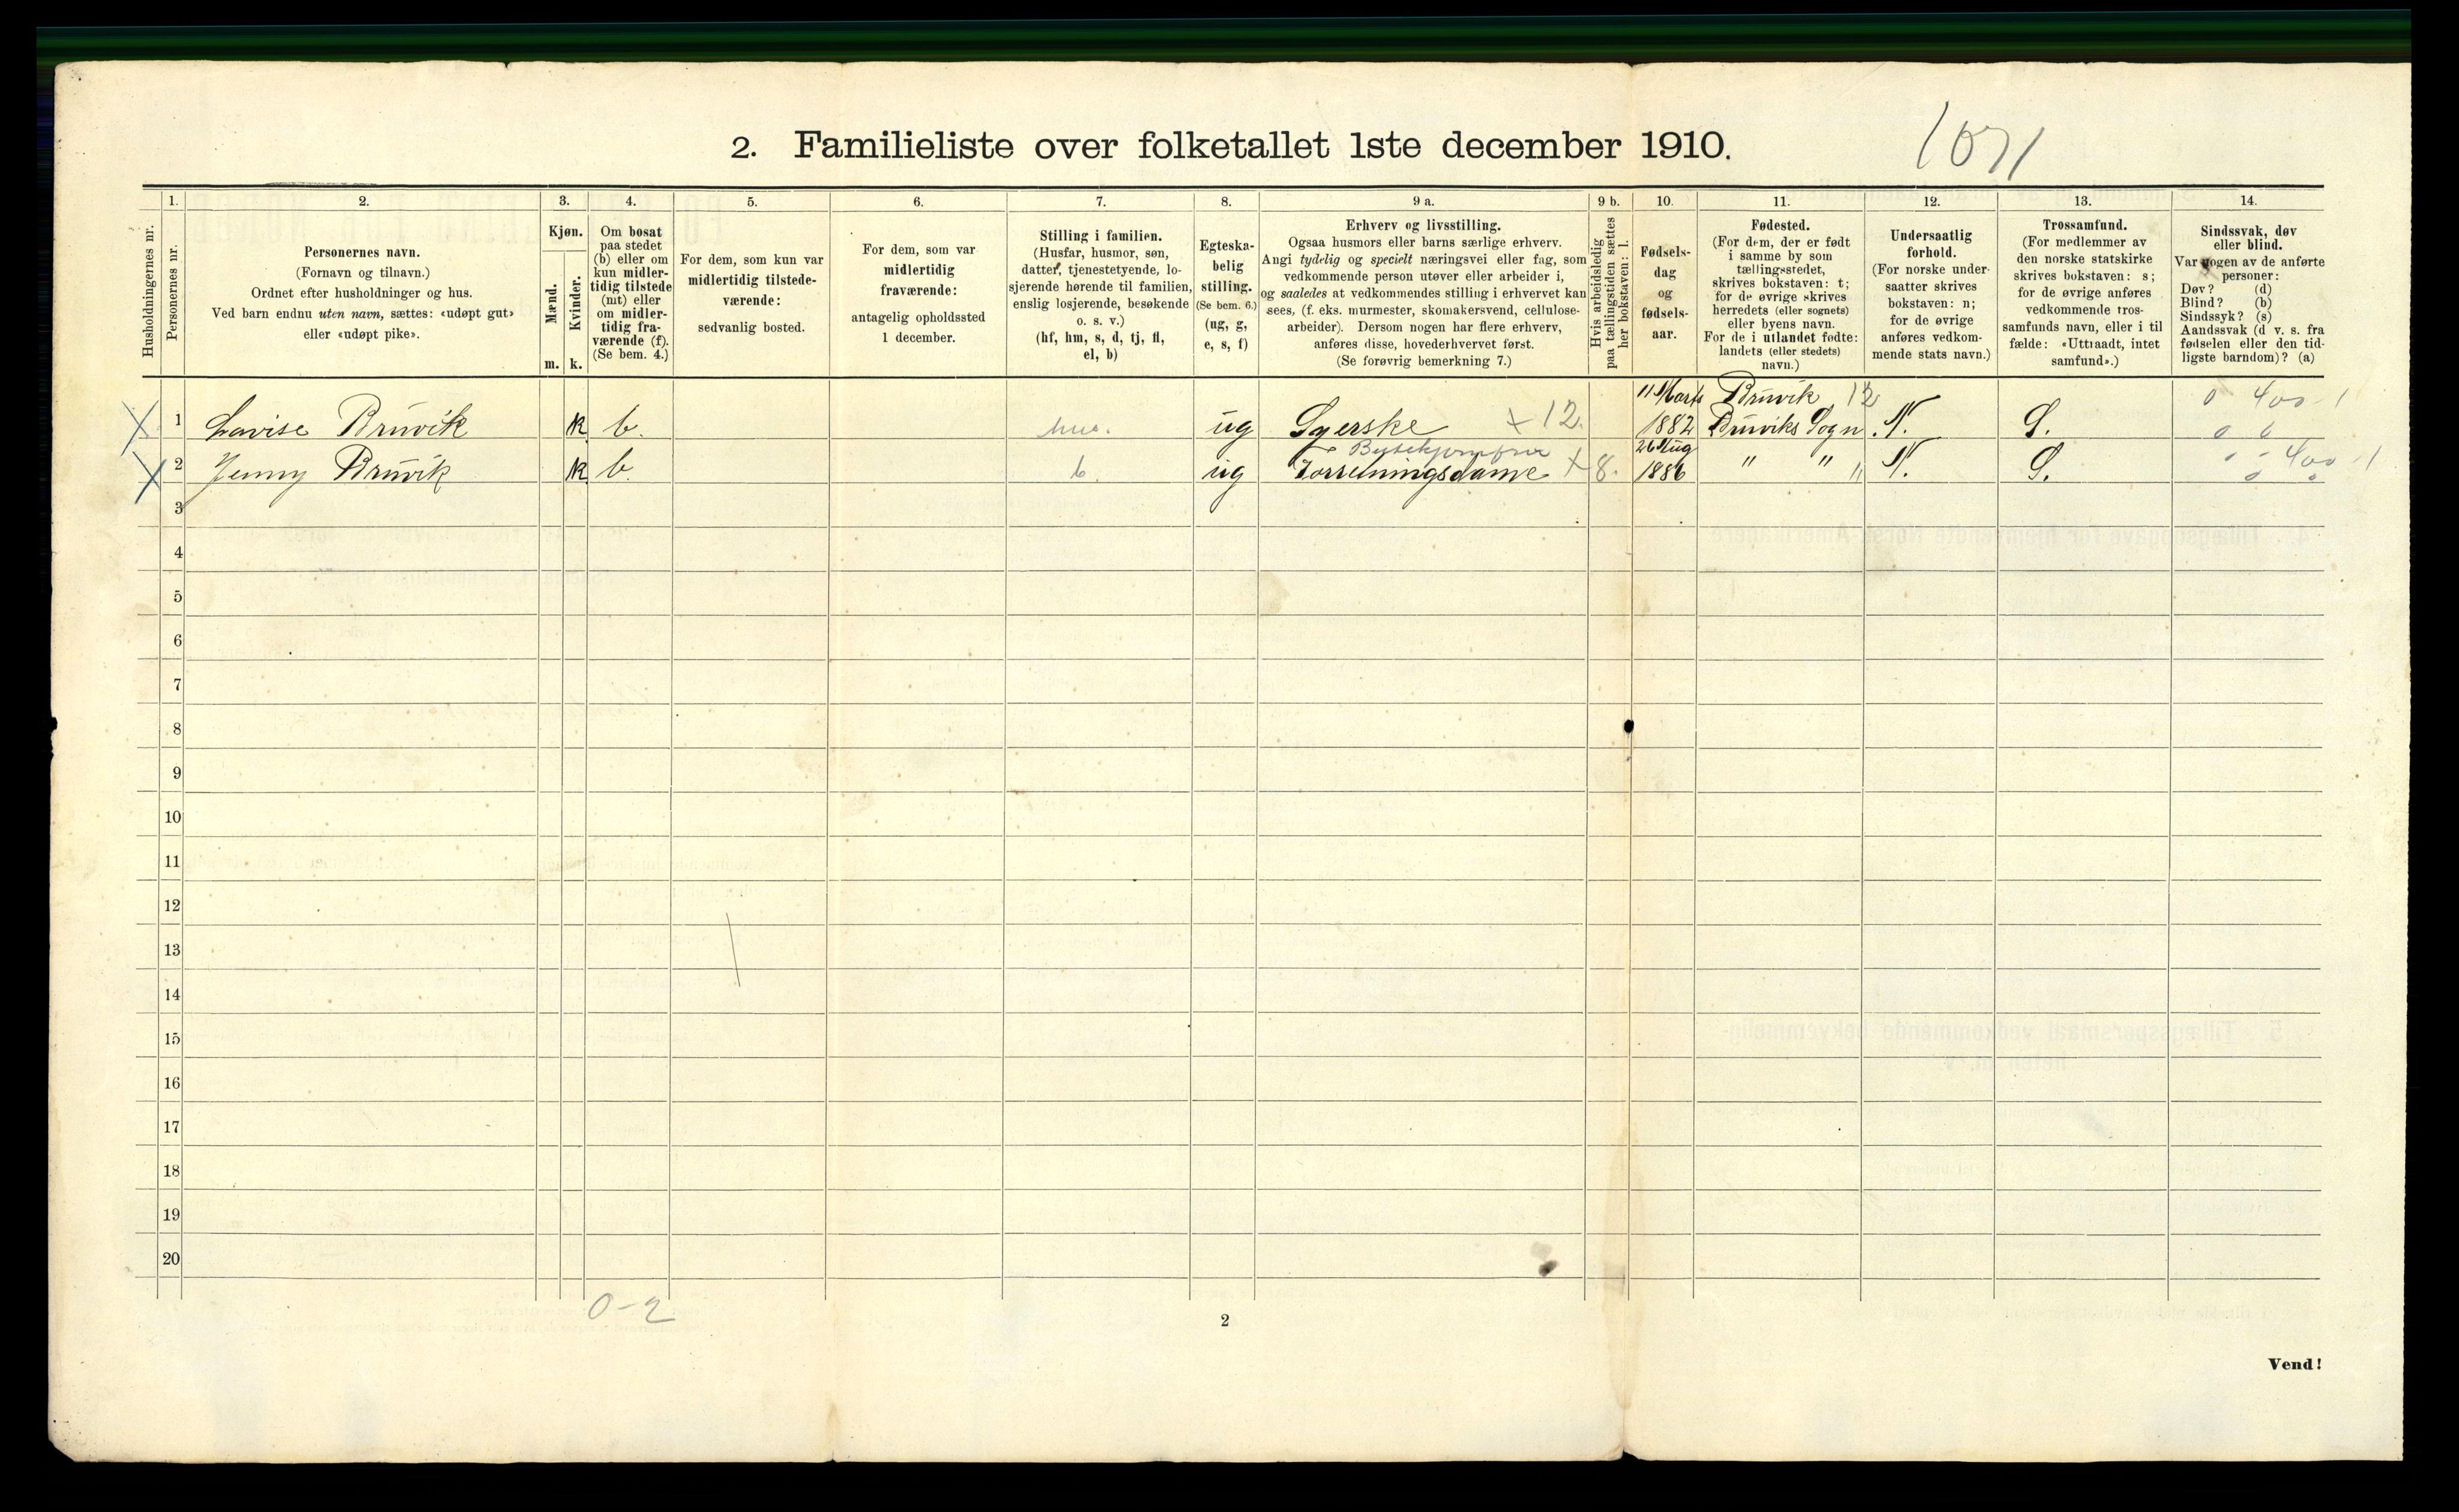 1071
2. Familieliste over folketallet 1ste december 1910.
Husholdningernes nr.
1.
Personernes nr.
2.
Personernes navn.
(Fornavn og tilnavn.)
Ordnet efter husholdninger og hus.
Ved barn endnu uten navn, sættes: «udøpt gut»
eller «udøpt pike».
3.
Kjøn.
Mænd.
m.
Kvinder.
k.
4.
Om bosat
paa stedet
(b) eller om
kun midler-
tidig tilstede
(mt) eller
om midler-
tidig fra-
værende (f).
(Se bem. 4.)
5.
For dem, som kun var
midlertidig tilstede-
værende:
sedvanlig bosted.
6.
For dem, som var
midlertidig
fraværende:
antagelig opholdssted
1 december.
7.
Stilling i familien.
(Husfar, husmor, søn,
datter, tjenestetyende, lo-
sjerende hørende til familien,
enslig losjerende, besøkende
o. s. v.)
(hf, hm, s, d, tj, fl,
el, b)
8.
Egteska-
belig
stilling.
(Se bem. 6.)
(ug, g,
e, s, f)
9 a.
Erhverv og livsstilling.
Ogsaa husmors eller barns særlige erhverv.
Angi tydelig og specielt næringsvei eller fag, som
vedkommende person utøver eller arbeider i,
og saaledes at vedkommendes stilling i erhvervet kan
sees, (f. eks. murmester, skomakersvend, cellulose-
arbeider). Dersom nogen har flere erhverv,
anføres disse, hovederhvervet først.
(Se forøvrig bemerkning 7.)
9 b.
Hvis arbeidsledig
paa tællingstiden sættes
her bokstaven: l.
10.
Fødsels-
dag
og
fødsels-
aar.
11.
Fødested.
(For dem, der er født
i samme by som
tællingsstedet,
skrives bokstaven: t;
for de øvrige skrives
herredets (eller sognets)
eller byens navn.
For de i utlandet fødte:
landets (eller stedets)
navn.)
12.
Undersaatlig
forhold.
(For norske under-
saatter skrives
bokstaven: n;
for de øvrige
anføres vedkom-
mende stats navn.)
13.
Trossamfund.
(For medlemmer av
den norske statskirke
skrives bokstaven: s;
for de øvrige anføres
vedkommende tros-
samfunds navn, eller i til
fælde: «Uttraadt, intet
samfund».)
14.
Sindssvak, døv
eller blind.
Var nogen av de anførte
personer:
Døv? (d)
Blind? (b)
Sindssyk? (s)
Aandssvak (d v. s. fra
fødselen eller den tid-
ligste barndom)? (a)
11 Marts Bruvik 12 0 400-1
X 1 Lovise Bruvik k b. ug Syerske + 12. 1882 Bruviks Sogn N. S. 0 0
26 Aug
X 2 Jenny Bruvik k b. b. ug Forretningsdame + 8. 1886 " " " N. S. 400-1
3
4
5
6
7
8
9
10
11
12
13
14
15
16
17
18
19
20
0-2
2
Vend!